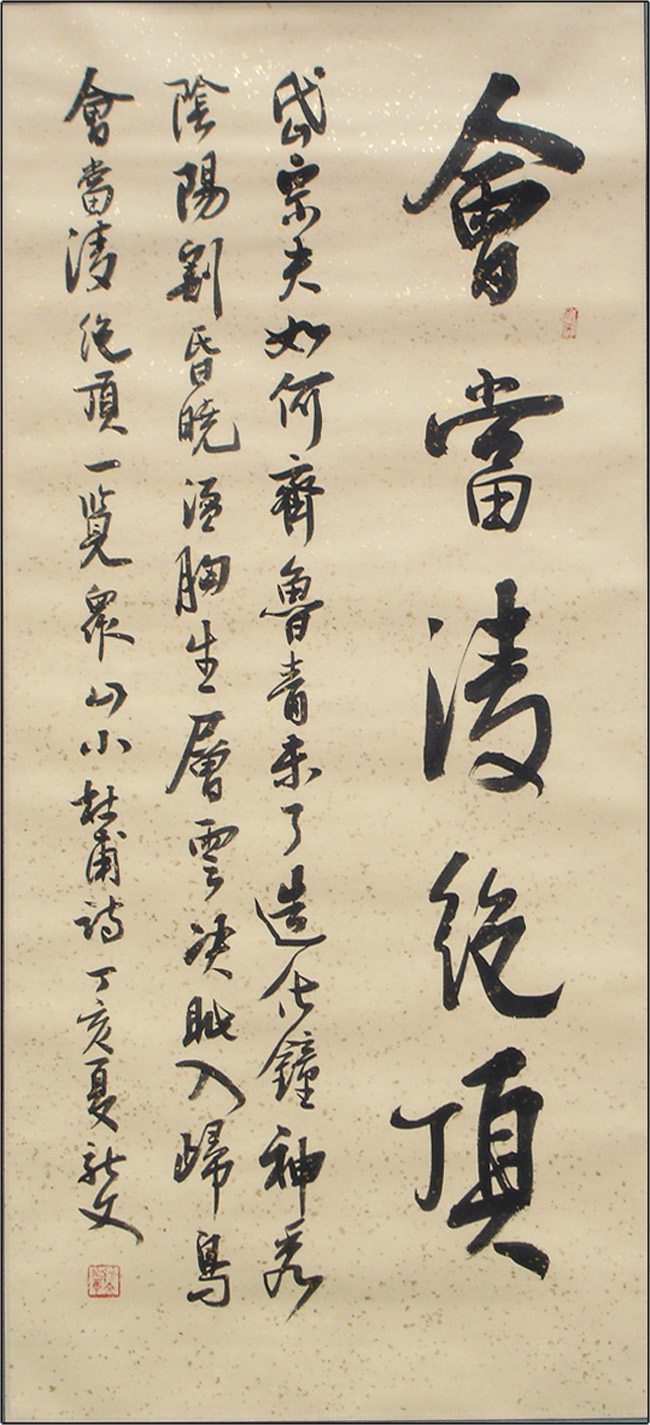 會當淩絶頂
岱宗夫如何齊魯青未了造化鐘神秀
陰陽割昏曉盪胸生層雲决眦入歸鳥
會當淩絶頂一覽衆山小杜甫詩丁亥夏文